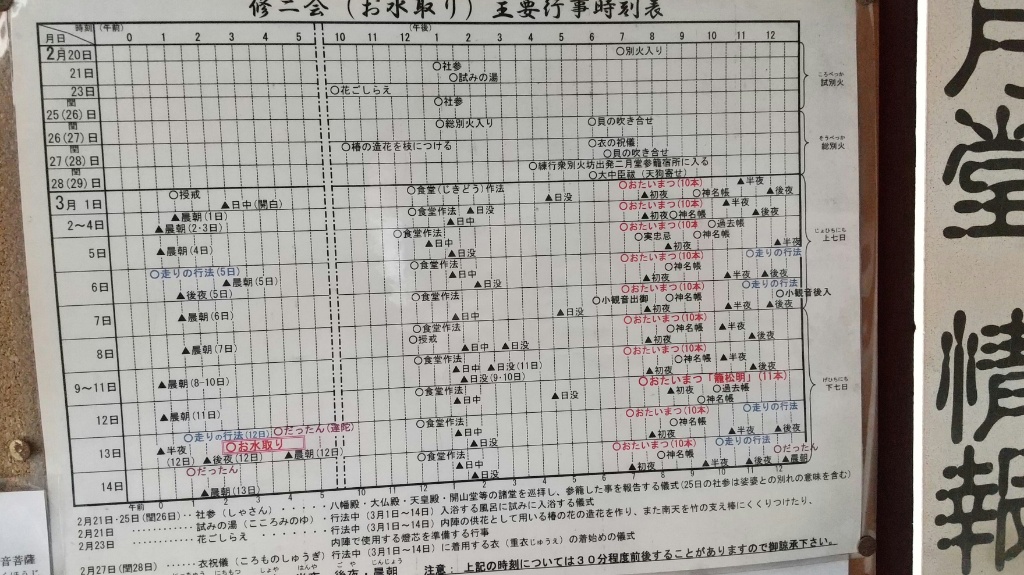 修二会（お水取り）主要行事時刻表
月日 時刻 (午前) 0 1 2 3 4 5 10 11 12 (午後) 1 2 3 4 5 6 7 8 9 10 11 12
2月20日 ○別火入り
21日 ○社参
○試みの湯
23日 ○花ごしらえ
閏
25(26)日 ○社参
閏
26(27)日 ○総別火入り ○貝の吹き合せ
閏
27(28)日 ○椿の造花を枝につける ○衣の祝儀
○貝の吹き合せ
閏
28(29)日 ○練行衆別火坊出発二月堂参籠宿所に入る
○大中臣祓（天狗寄せ）
ころべっか
試別火
そうべっか
総別火
3月 1日 ○授戒 ▲日中(開白) ○食堂(じきどう)作法 ▲日没 ○おたいまつ(10本) ▲初夜 ○神名帳 ▲半夜 ▲後夜
2～4日 ▲晨朝(1日)
▲晨朝(2・3日) ○食堂作法 ▲日没
▲日中 ○おたいまつ(10本)
▲初夜○神名帳 ▲半夜
▲後夜
5日 ▲晨朝(4日) ○食堂作法
▲日中
▲日没 ○おたいまつ(10本) ○過去帳
○実忠忌 ○神名帳
▲初夜 ▲半夜
じょひちにち
上七日
6日 ○走りの行法(5日)
▲晨朝(5日)
▲後夜(5日) ○食堂作法
▲日中
▲日没 ○おたいまつ(10本)
○神名帳
▲初夜 ○走りの行法
▲半夜 ▲後夜
7日 ▲晨朝(6日) ○食堂作法
▲日中 ▲日没 ○おたいまつ(10本)
○小観音出御 ○神名帳
▲初夜 ○走りの行法
○小観音後入
▲半夜 ▲後夜
8日 ▲晨朝(7日) ○食堂作法
○授戒
▲日中 ▲日没 ○おたいまつ(10本)
○神名帳 ▲半夜
▲初夜 ▲後夜
9～11日 ▲晨朝(8-10日) ○食堂作法
▲日中 ▲日没(11日)
▲日没(9・10日) ○おたいまつ(10本)
○神名帳 ▲半夜
▲初夜 ▲後夜
げひちにち
下七日
12日 ▲晨朝(11日) ○食堂作法
▲日中 ▲日没 ○おたいまつ「籠松明」(11本)
▲初夜 ○過去帳
○神名帳
13日 ○走りの行法(12日) ○だったん(達陀)
○お水取り
▲半夜
(12日) ▲後夜(12日) ▲晨朝(12日) ○食堂作法
▲日中
▲日没 ○おたいまつ(10本) ○走りの行法
○神名帳
▲初夜 ▲半夜 ▲後夜
14日 ○だったん
▲晨朝(13日) ○食堂作法
▲日中
▲日没 ○おたいまつ(10本) ○走りの行法 ○だったん
○神名帳
▲初夜 ▲半夜 ▲後夜 ▲晨朝
2月21日・25日(閏26日)・・社参（しゃさん）・・・・・・八幡殿・大仏殿・天皇殿・開山堂等の諸堂を巡拝し、参籠した事を報告する儀式(25日の社参は娑婆との別れの意味を含む)
2月21日・・・・・・・・・・試みの湯（こころみのゆ）・行法中（3月1日～14日）入浴する風呂に試みに入浴する儀式
2月23日・・・・・・・・・・花ごしらえ・・・・・・・・行法中（3月1日～14日）内陣の供花として用いる椿の花の造花を作り、また南天を竹の支え棒にくくりつけたり、
内陣で使用する燈芯を準備する行事
2月27日(閏28日)・・・・・・衣祝儀（ころものしゅうぎ）行法中（3月1日～14日）に着用する衣（重衣じゅうえ）の着始めの儀式
後夜・晨朝 注意： 上記の時刻については３０分程度前後することがありますので御諒承下さい。
音菩薩
月堂 情報